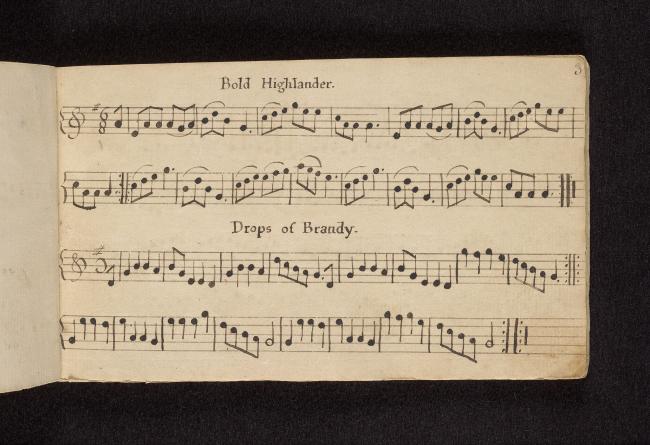 3
Bold Highlander.
6
8
Drops of Brandy.
3